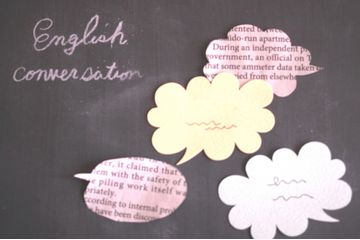 English
conversation
mented between
ido-run apartme
During an independent p
government, an official on T
that some ammeter data taken
ied from elsewhe
r, it claimed that
m with the safety of
e piling work itself was
priately.
ccording to internal pro
have been disco